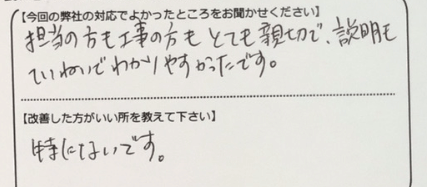 【今回の弊社の対応でよかったところをお聞かせください】
担当の方も工事の方もとても親切で、説明も
ていねいでわかりやすかったです。
【改善した方がいい所を教えて下さい】
特にないです。